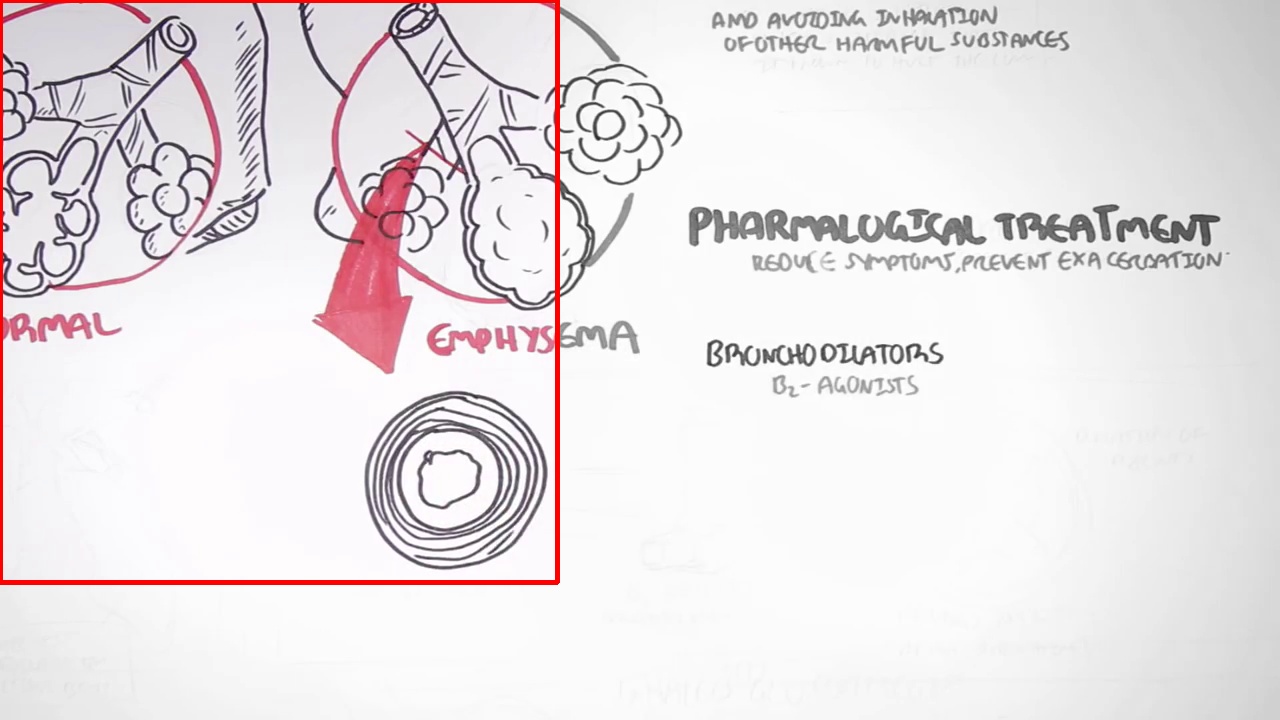 AND AVOIDING INHALATION
OF OTHER HARMFUL SUBSTANCES
PHARMALOGICAL TREATMENT
REDUCE SYMPTOMS, PREVENT EXACERBATION
ORMAL
EMPHYSEMA
BRONCHODILATORS
B₂- AGONISTS